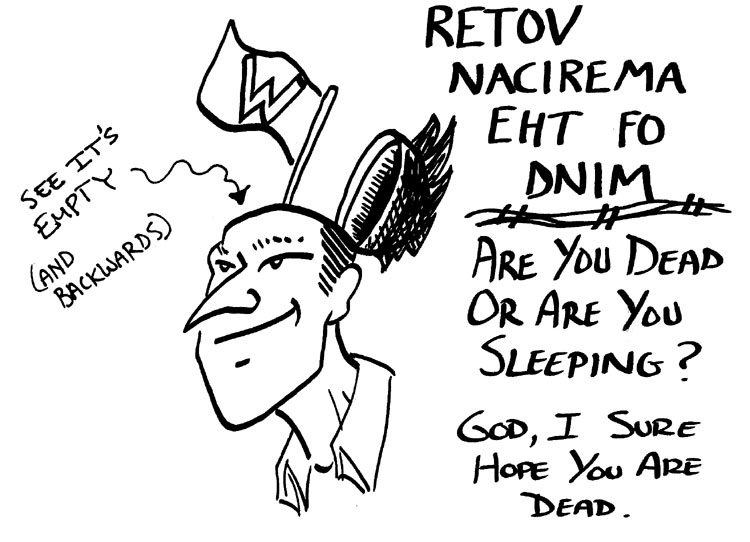 RETOV
NACIREMA
EHT FO
DNIM
ARE YOU DEAD
OR ARE YOU
SLEEPING?
GOD, I SURE
HOPE YOU ARE
DEAD.
SEE IT'S
EMPTY
(AND
BACKWARDS)
W